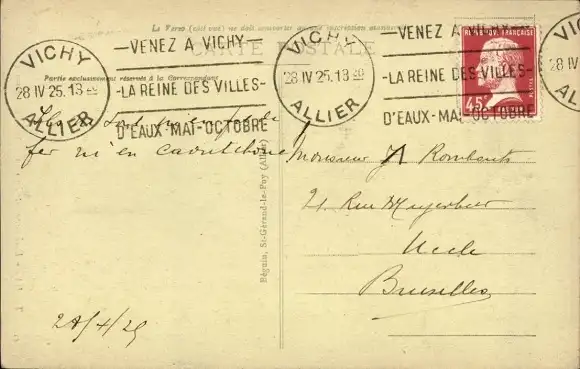 Le Verso (côté vue) ne doit comporter aucune inscription manuscrite
CARTE POSTALE
Partie exclusivement réservée à la Correspondance
VICHY
28 IV 25.18
ALLIER
VENEZ A VICHY
LA REINE DES VILLES
D'EAUX-MAI-OCTOBRE
VICHY
28 IV 25.18
ALLIER
VENEZ A VICHY
LA REINE DES VILLES
D'EAUX-MAI-OCTOBRE
VICHY
28 IV
ALLIER
FRANÇAISE
45c
sont
fer ni en caoutchouc
28/4/25
Béguin, St-Gérand-le-Puy (Allier)
Monsieur Rombauts
21 Rue Meyerbeer
Uccle
Bruxelles